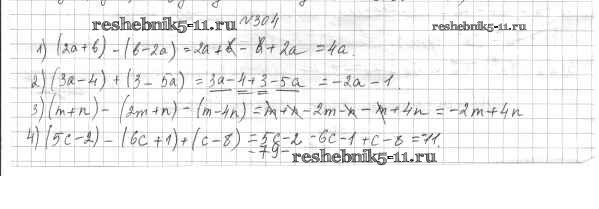 reshebnik5-11.ru №304 reshebnik5-11.ru
1) (2a+b) - (b-2a) = 2a + b - b + 2a = 4a.
2) (3a-4) + (3-5a) = 3a-4+3-5a = -2a-1.
3) (m+n) - (2m+n) - (m-4n) = m+n-2m-n-m+4n = -2m+4n
4) (5c-2) - (6c+1) + (c-8) = 5c-2-6c-1+c-8 = 11.
reshebnik5-11.ru